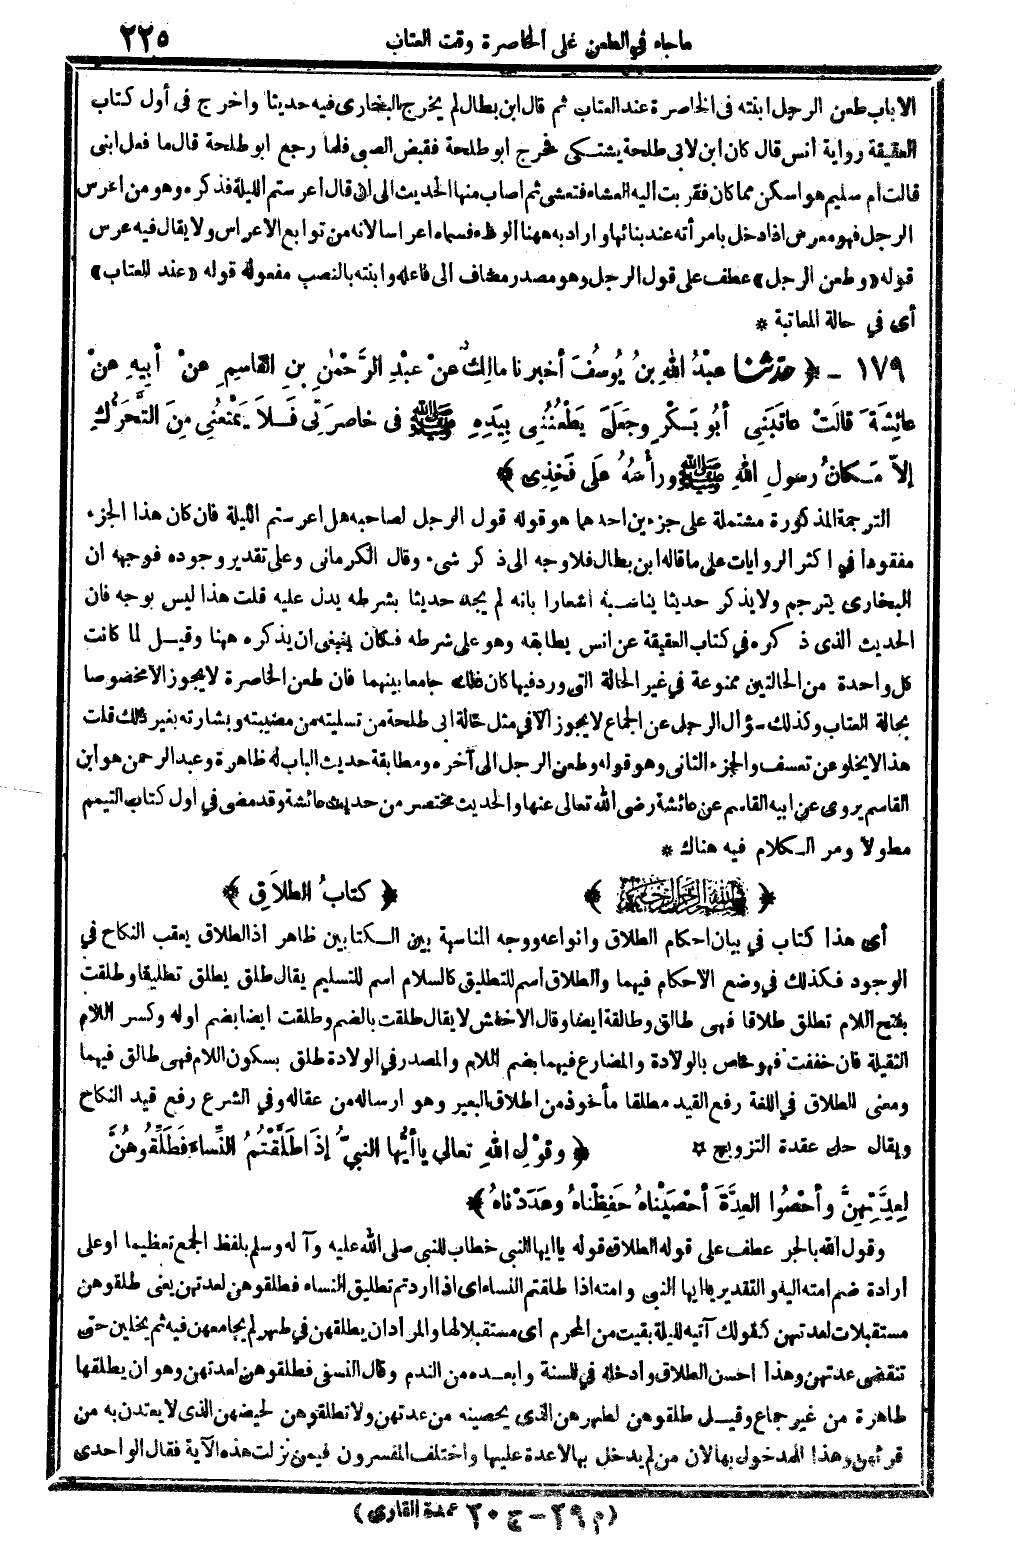 ماجاء في الطعن على الخاصرة وقت العتاب ٢٢٥
الاباب طعن الرجل ابنته فى الخاصرة عند العتاب ثم قال ابن بطال لم يخرج البخارى فيه حديثا واخرج فى أول كتاب
العقيقة رواية أنس قال كان ابن لابى طلحة يشتكى فخرج ابو طلحة فقبض الصبى فلما رجع ابو طلحة قال ما فعل ابنى
قالت ام سليم هو اسكن مما كان فقربت اليه العشاء فتعشى ثم اصاب منها الحديث الى ان قال اعرستم الليلة فذكره وهو من اعرس
الرجل فهو معرس اذا دخل بامرأته عند بنائها واراد به ههنا الوطء فسماه اعراسا لانه من توابع الاعراس ولا يقال فيه عرس
قوله «وطعن الرجل» عطف على قول الرجل وهو مصدر مضاف الى فاعله وابنته بالنصب مفعوله قوله «عند العتاب»
أى في حالة المعاتبة *
١٧٩ ـ ﴿ حدثنا عبْدُ اللهِ بنُ يُوسُفَ أخبرنا مالِكٌ عنْ عبْدِ الرَّحْمٰنِ بنِ القاسِمِ عنْ أبِيهِ عنْ
عائِشَةَ قالَتْ عاتَبَنِي أبُو بَكْرٍ وجَعَلَ يَطْعُنُنِي بِيَدِهِ ﷺ فى خاصِرَتِي فَلاَ يَمْنَعُنِي مِنَ التَّحَرُّكِ
إلاَّ مَكانُ رسولِ اللهِ ﷺ ورأسُهُ علَى فَخِذِى ﴾
الترجمة المذكورة مشتملة على جزءين احدهما هو قوله قول الرجل لصاحبه هل اعرستم الليلة فان كان هذا الجزء
مفقودا في اكثر الروايات على ما قاله ابن بطال فلا وجه الى ذكر شىء وقال الكرمانى وعلى تقدير وجوده فوجهه ان
البخارى يترجم ولا يذكر حديثا يناسبه اشعارا بانه لم يجد حديثا بشرطه يدل عليه قلت هذا ليس بوجه فان
الحديث الذى ذكره في كتاب العقيقة عن انس يطابقه وهو على شرطه فكان ينبغى ان يذكره ههنا وقيل لما كانت
كل واحدة من الحالتين ممنوعة في غير الحالة التى ورد فيها كان ذلك جامعا بينهما فان طعن الخاصرة لا يجوز الا مخصوصا
بحالة العتاب وكذلك سؤال الرجل عن الجماع لا يجوز الا في مثل حالة ابى طلحة من تسليته من مصيبته وبشارته بغير ذلك قلت
هذا لا يخلو عن تعسف والجزء الثانى وهو قوله وطعن الرجل الى آخره ومطابقة حديث الباب له ظاهرة وعبد الرحمن هو ابن
القاسم يروى عن ابيه القاسم عن عائشة رضى الله تعالى عنها والحديث مختصر من حديث عائشة وقد مضى في اول كتاب التيمم
مطولا ومر الكلام فيه هناك *
﴿ بسم الله الرحمن الرحيم ﴾ ﴿ كتابُ الطلاَقِ ﴾
أى هذا كتاب في بيان احكام الطلاق وانواعه ووجه المناسبة بين الكتابين ظاهر اذ الطلاق يعقب النكاح في
الوجود فكذلك في وضع الاحكام فيهما والطلاق اسم للتطليق كالسلام اسم للتسليم يقال طلق يطلق تطليقا وطلقت
بفتح اللام تطلق طلاقا فهى طالق وطالقة ايضا وقال الاخفش لا يقال طلقت بالضم وطلقت ايضا بضم اوله وكسر اللام
الثقيلة فان خففت فهو خاص بالولادة والمضارع فيهما بضم اللام والمصدر في الولادة طلق بسكون اللام فهى طالق فيهما
ومعنى الطلاق في اللغة رفع القيد مطلقا مأخوذ من اطلاق البعير وهو ارساله من عقاله وفي الشرع رفع قيد النكاح
ويقال حل عقدة التزويج * ﴿ وقوْلِ اللهِ تعالى ياأيُّها النبيُّ إذَا طَلَّقْتُمُ النِّساءَ فَطَلِّقُوهُنَّ
لِعِدَّتِهِنَّ وأحْصُوا العِدَّةَ أحْصَيْناهُ حَفِظْناهُ وعَدَدْناهُ ﴾
وقول الله بالجر عطف على قوله الطلاق قوله يا ايها النبي خطاب للنبى صلى الله عليه وآله وسلم بلفظ الجمع تعظيما او على
ارادة ضم امته اليه والتقدير يا ايها النبى وامته اذا طلقتم النساء اى اذا اردتم تطليق النساء فطلقوهن لعدتهن يعنى طلقوهن
مستقبلات لعدتهن كقولك آتيه لليلة بقيت من المحرم اى مستقبلا لها والمراد ان يطلقهن في طهر لم يجامعهن فيه ثم يخلين حتى
تنقضى عدتهن وهذا احسن الطلاق وأدخله في السنة وابعده من الندم وقال النسفى فطلقوهن لعدتهن وهو ان يطلقها
طاهرة من غير جماع وقيل طلقوهن لطهرهن الذى يحصينه من عدتهن ولا تطلقوهن لحيضهن الذى لا يعتدن به من
قرئهن وهذا للمدخول بها لان من لم يدخل بها لا عدة عليها واختلف المفسرون فيمن نزلت هذه الآية فقال الواحدى
(م ٢٩ - ج ٢٠ عمدة القارى)